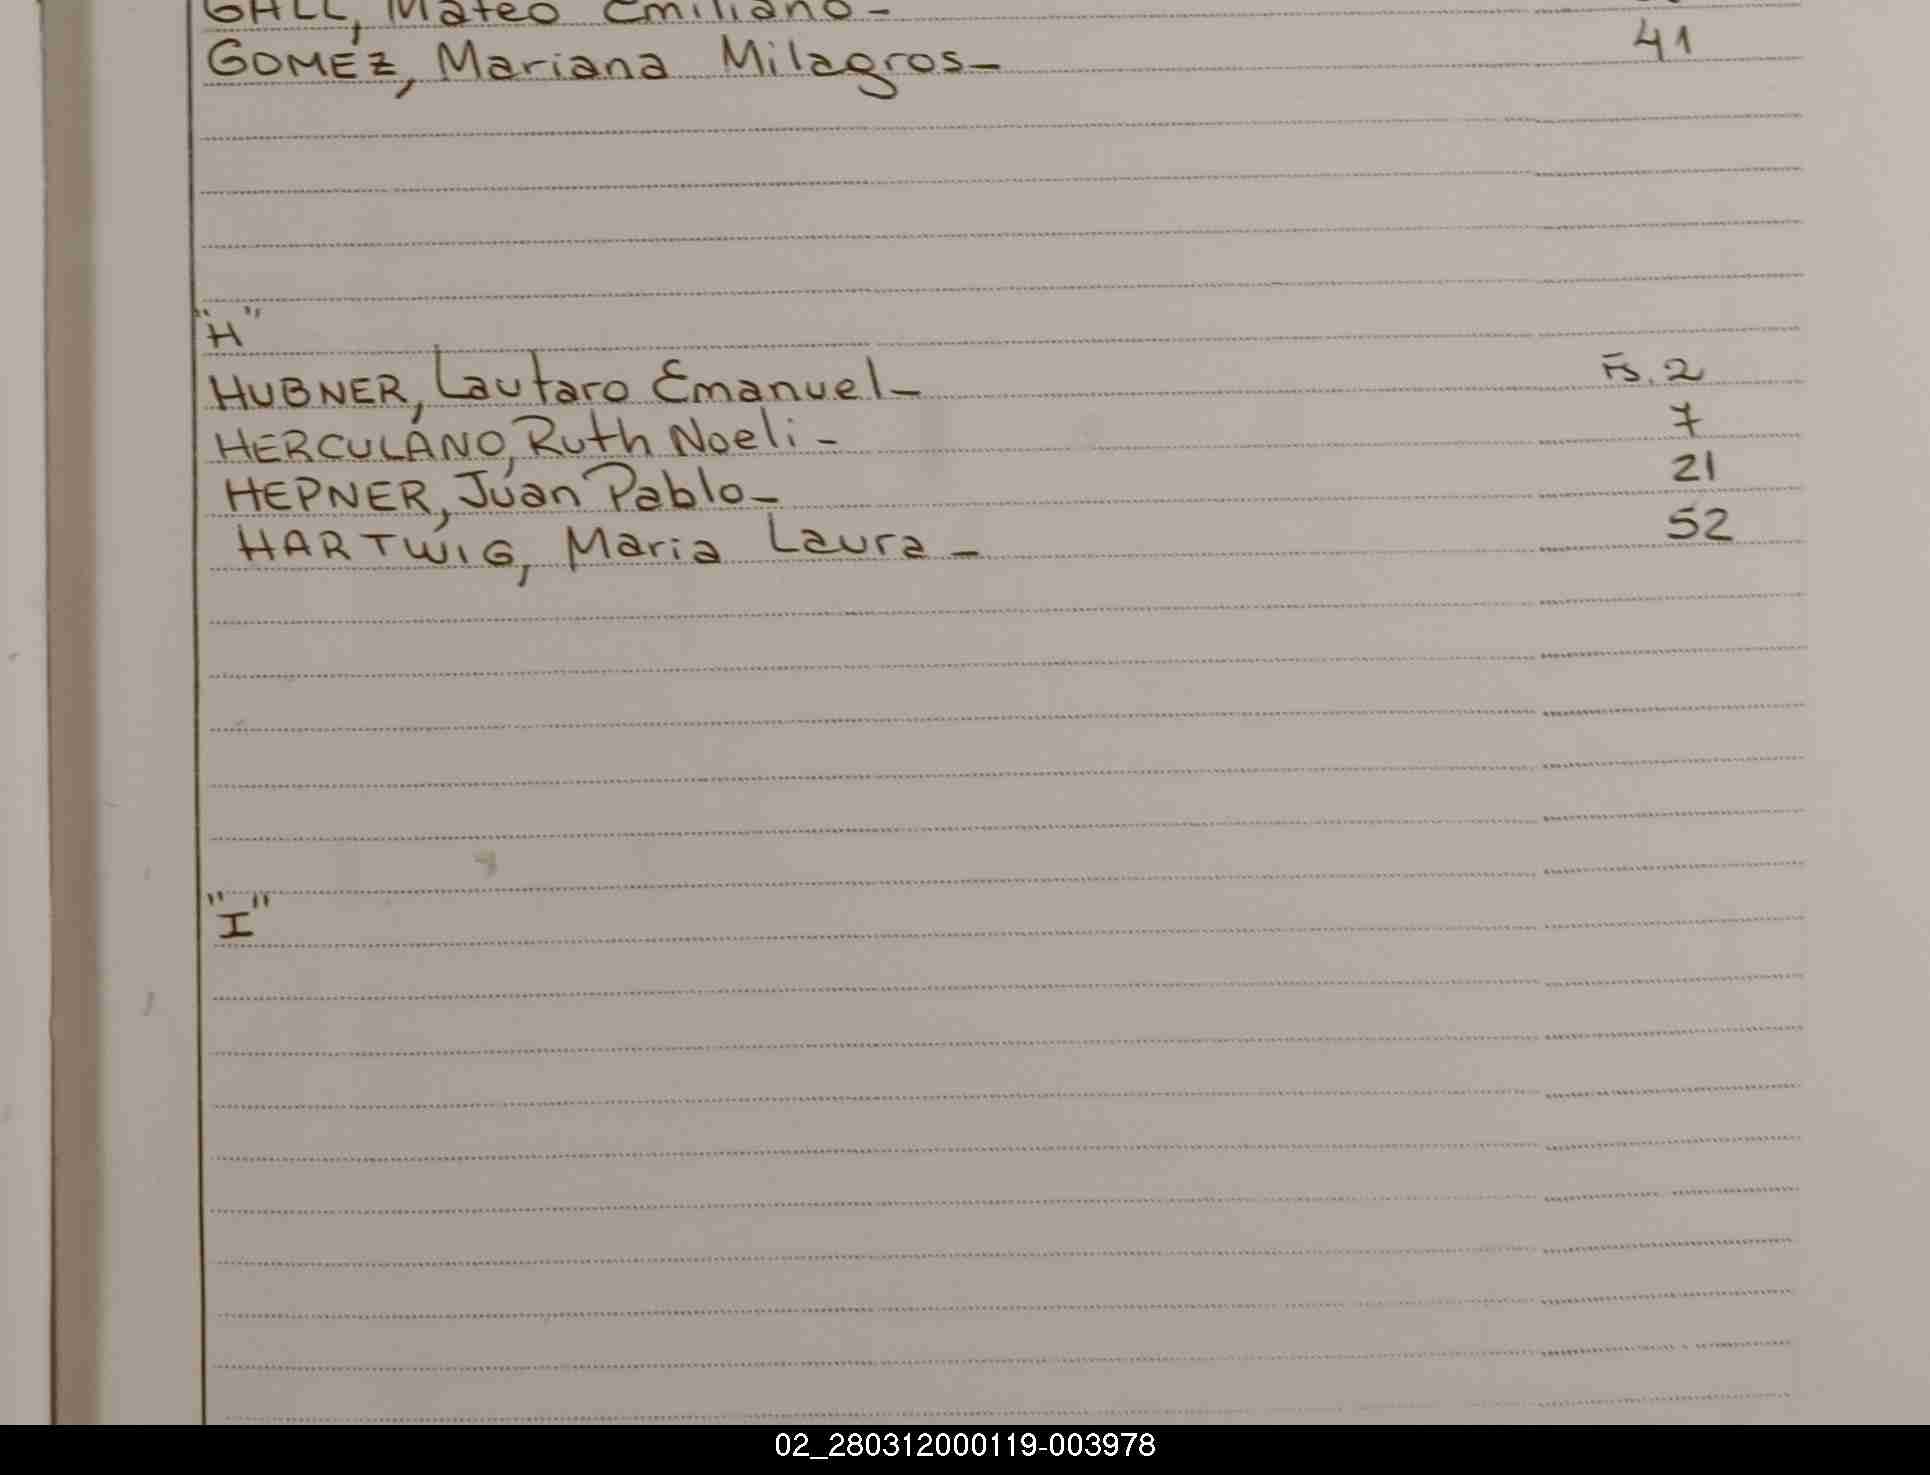 GALL, Mateo Emiliano -
GOMEZ, Mariana Milagros - 41
"H"
HUBNER, Lautaro Emanuel - Fs. 2
HERCULANO, Ruth Noeli - 7
HEPNER, Juan Pablo - 21
HARTWIG, Maria Laura - 52
"I"
02_280312000119-003978